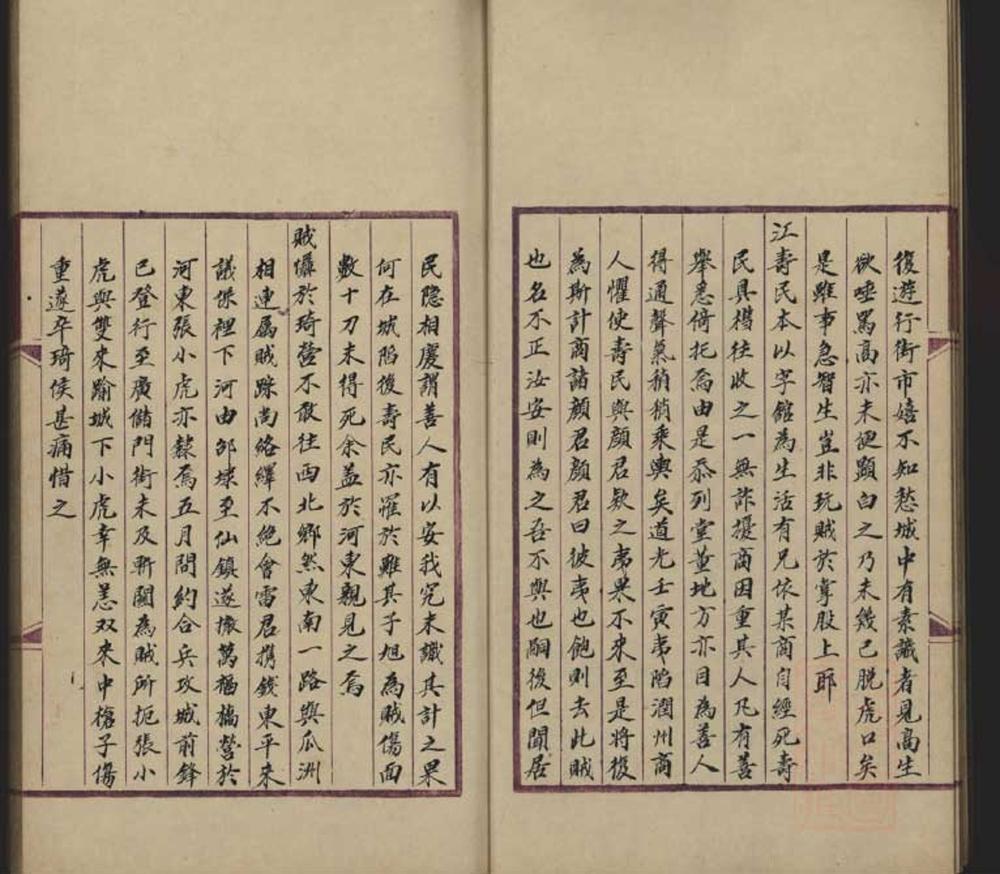 復遊行街市嬉不知愁城中有素識者見高生
欲唾罵高亦未便顯白之乃未幾已脫虎口矣
是雖事急智生豈非玩賊於掌股上耶
江壽民本以字館為生活有兄依某商自經死壽
民具櫘往收之一無詐擾商因重其人凡有善
舉悉倚托焉由是忝列堂董地方亦目為善人
得通聲氣稍稍乘輿矣道光壬寅夷陷潤州商
人懼使壽民與顏君欵之夷果不來至是將復
為斯計商諸顏君顏君曰彼夷也飽則去此賊
也名不正汝安則為之吾不與也嗣後但聞居
民隐相慶謂善人有以安我究未識其計之果
何在城陷後壽民亦罹於難其子旭為賊傷面
數十刀未得死余盖於河東親見之焉
賊懾於琦營不敢往西北鄉然東南一路與瓜洲
相連属賊踪尚絡繹不絕會雷君携錢東平來
議保裡下河由邵埭至仙鎮遂據萬福橋營於
河東張小虎亦隸焉五月間約合兵攻城前鋒
已登行至廣儲門街未及斬關為賊所扼張小
虎與雙來踰城下小虎幸無恙双來中槍子傷
重遂卒琦侯甚痛惜之